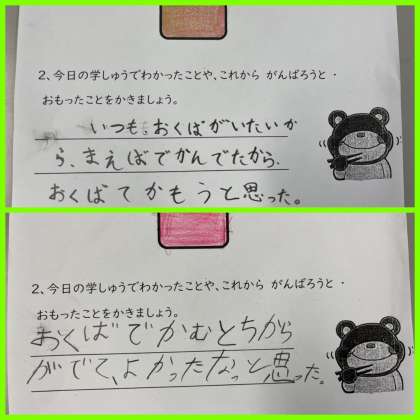 2、今日の学しゅうでわかったことや、これから がんばろうと・
おもったことをかきましょう。
いつも、おくばがいたいか
ら、まえばでかんでたから、
おくばてかもうと思った。
2、今日の学しゅうでわかったことや、これから がんばろうと・
おもったことをかきましょう。
おくばでかむとちから
がでて、よかったなっと思った。